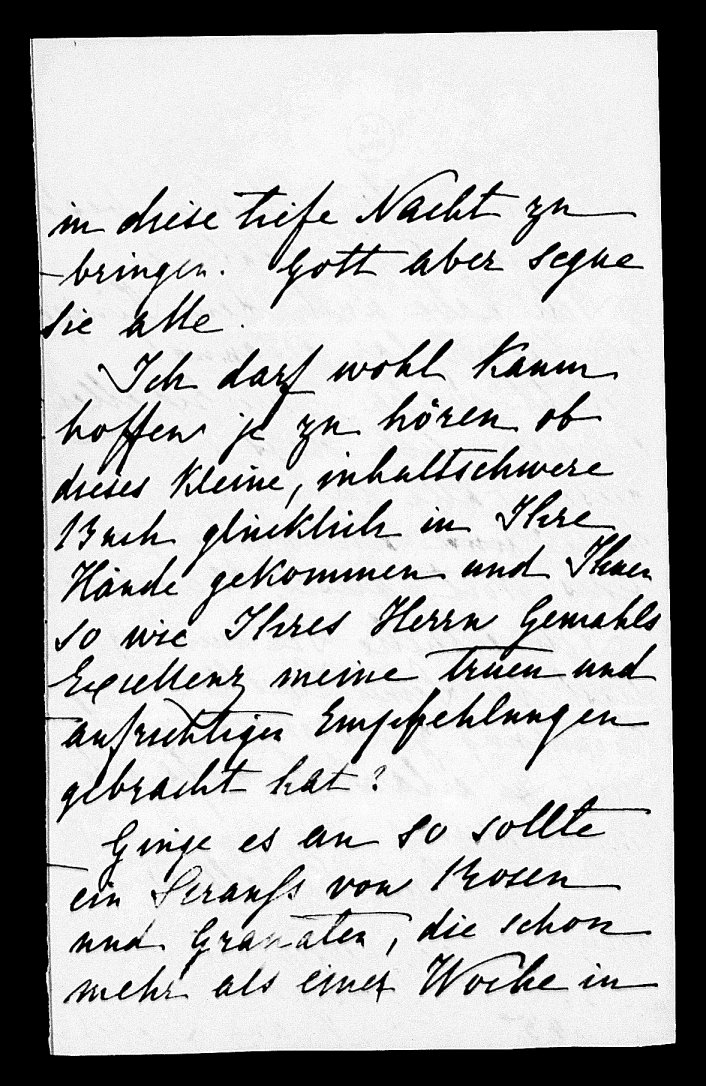 in diese tiefe Nacht zu
bringen. Gott aber segne
Sie alle.
Ich darf wohl kaum
hoffen je zu hören ob
dieses kleine, inhaltschwere
Buch glücklich in Ihre
Hände gekommen und Ihnen
so wie Ihres Herrn Gemahls
Excellenz meine truen und
aufrichtigen Empfehlungen
gebracht hat?
Ginge es an so sollte
ein Strauß von Rosen
und Granaten, die schon
mehr als einer Woche in